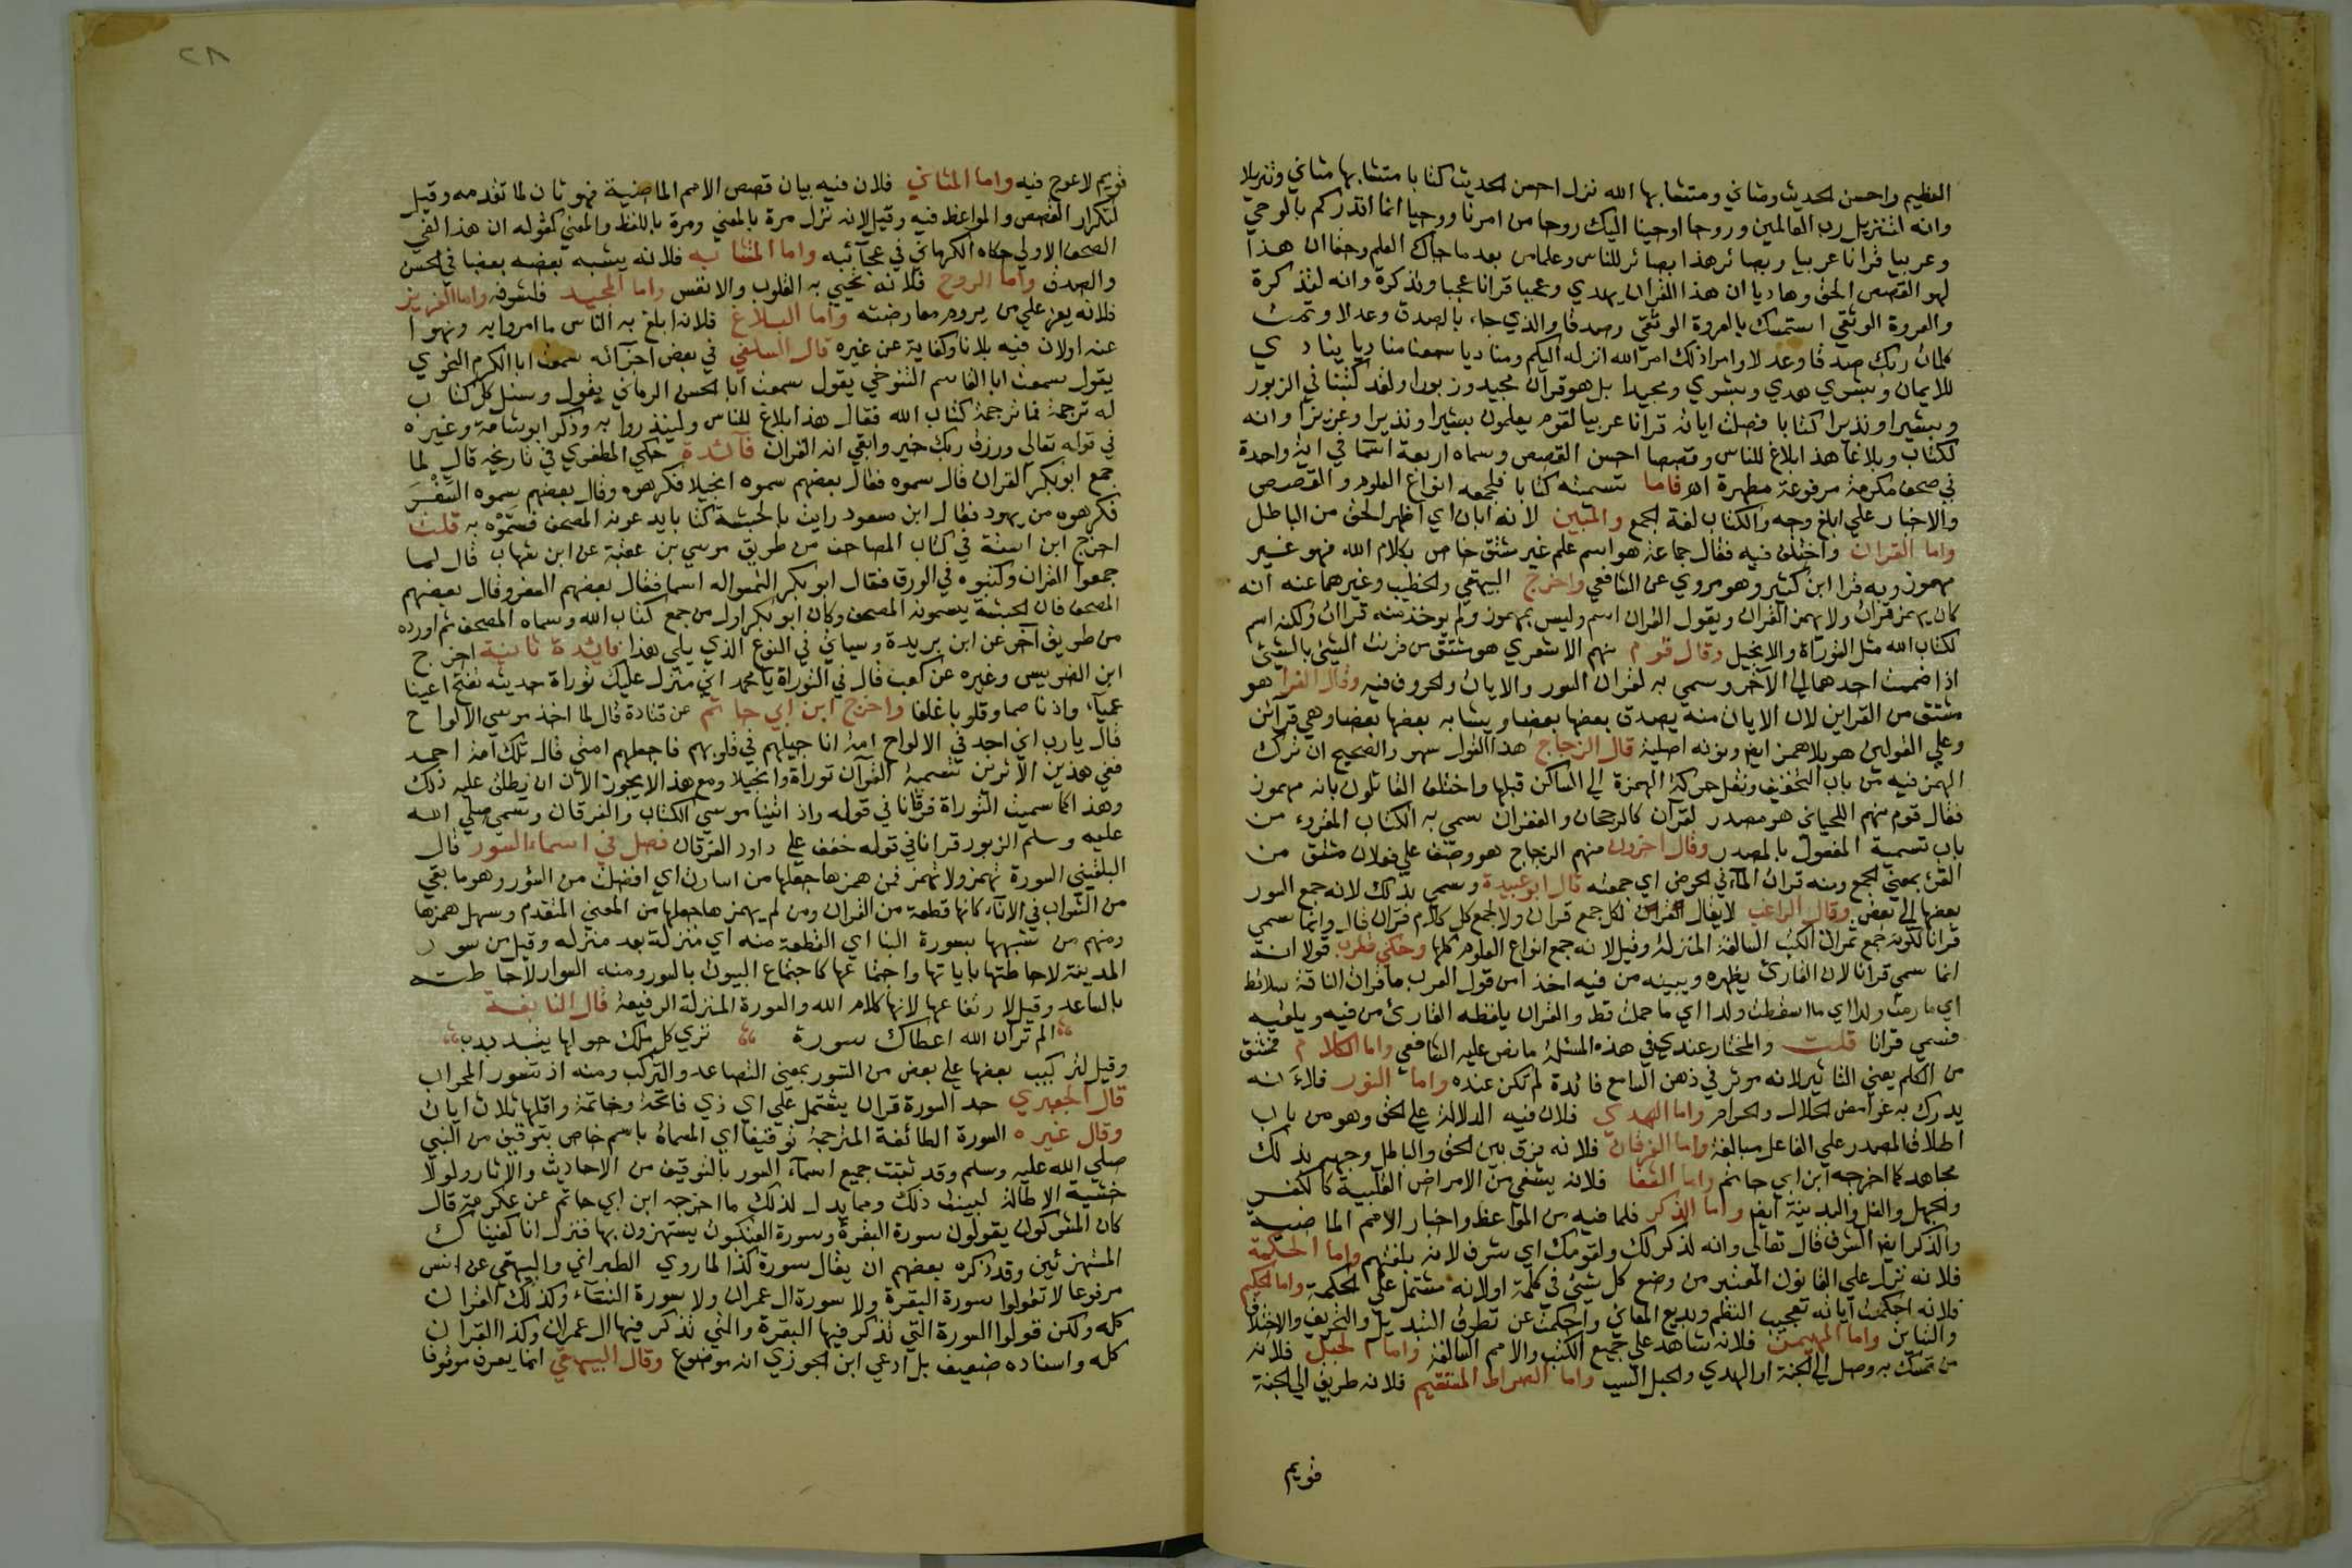 العظيم واحسن الحديث ومثاني ومتشابها الله نزل احسن الحديث كتابا متشابها مثاني وتنزيلا
وانه لتنزيل رب العالمين وروحا اوحينا اليك روحا من امرنا ووحيا انما انذركم بالوحي
وعربيا قرانا عربيا وبصائر هذا بصائر للناس وعلما من بعد ما جاك العلم وحقا ان هذا
لهو القصص الحق وهاديا ان هذا القران يهدي وعجبا قرانا عجبا وتذكرة وانه لتذكرة
والعروة الوثقي استمسك بالعروة الوثقي وصدقا والذي جاء بالصدق وعدلا وتمت
كلمات ربك صدقا وعدلا وامرا ذلك امر الله انزله اليكم ومناديا سمعنا مناديا ينادي
للايمان وبشري هدي وبشري ومجيدا بل هو قران مجيد وزبورا ولقد كتبنا في الزبور
وبشيرا ونذيرا كتابا فصلت اياته قرانا عربيا لقوم يعلمون بشيرا ونذيرا وعزيزا وانه
لكتاب وبلاغا هذا بلاغ للناس وقصصا احسن القصص وسماه اربعة اسما في اية واحدة
في صحف مكرمة مرفوعة مطهرة اه فاما تسميته كتابا فلجمعه انواع العلوم والقصص
والاخبار علي ابلغ وجه والكتاب لغة الجمع والمبين لانه ابان اي اظهر الحق من الباطل
واما القران واختلف فيه فقال جماعة هو اسم علم غير مشتق خاص بكلام الله فهو غير
مهموز وبه قرا ابن كثير وهو مروي عن الشافعي واخرج البيهقي والخطيب وغيرهما عنه انه
كان يهمز قران ولا يهمز القران ويقول القران اسم وليس بمهموز ولم يوخذ من قراات ولكنه اسم
لكتاب الله مثل التوراة والانجيل وقال قوم منهم الاشعري هو مشتق من قرنت الشيئ بالشيئ
اذا ضممت احدهما الي الاخر وسمي به لقران السور والايات والحروف فيه وقال الفرا هو
مشتق من القراين لان الايات منه يصدق بعضها بعضا ويشابه بعضها بعضا وهي قرائن
وعلي القولين هو بلا همز ايضا ونونه اصلية قال الزجاج هذا القول سهو والصحيح ان ترك
الهمز فيه من باب التخفيف ونقل حركة الهمزة الي الساكن قبلها واختلف القائلون بانه مهموز
فقال قوم منهم اللحياني هو مصدر لقرآن كالرجحان والغفران سمي به الكتاب المقروء من
باب تسمية المفعول بالمصدر وقال اخرون منهم الزجاج هو وصف علي فعلان مشتق من
القرء بمعني الجمع ومنه قرات الماء في الحوض اي جمعته قال ابو عبيدة وسمي بذلك لانه جمع السور
بعضها الي بعض وقال الراغب لا يقال القران لكل جمع قران ولا لجمع كل كلام قران قال وانما سمي
قرانا لكونه جمع ثمرات الكتب السالفة المنزلة وقيل لانه جمع انواع العلوم كلها وحكي قطرب قولا انه
انما سمي قرانا لان القارئ يظهره ويبينه من فيه اخذا من قول العرب ما قرات الناقة سلا قط
اي ما رمت ولدا اي ما اسقطت ولدا اي ما حملت قط والقران يلفظه القارئ من فيه ويلقيه
فسمي قرانا قلت والمختار عندي في هذه المسئلة ما نص عليه الشافعي واما الكلام فمشتق
من الكلم يعني التاثير لانه موثر في ذهن السامع فائدة لم تكن عنده واما النور فلاء نه
يدرك به غوامض الحلال والحرام واما الهدي فلان فيه الدلالة علي الحق وهو من باب
اطلاق المصدر علي الفاعل مبالغة واما الفرقان فلانه فرق بين الحق والباطل وجهه بذلك
مجاهد كما اخرجه ابن ابي حاتم واما الشفا فلانه يشفي من الامراض القلبية كالكفر
والجهل والغل والبدينة ايضا واما الذكر فلما فيه من المواعظ واخبار الامم الماضية
والذكر ايضا الشرف قال تعالي وانه لذكر لك ولقومك اي شرف لانه بلغتهم واما الحكمة
فلانه نزل علي القانون المعتبر من وضع كل شيئ في كلمة اولانه مشتمل علي الحكمة واما الحكيم
فلانه احكمت آياته بعجيب النظم وبديع المعاني واحكمت عن تطرق التبديل والتحريف والاختلاف
والتباين واما المهيمن فلانه شاهد علي جميع الكتب والامم السالفة واما الحبل فلانه
من تمسك به وصل الي الجنة او الهدي والحبل السبب واما الصراط المستقيم فلانه طريق الي الجنة
قويم
٢٨
قويم لا عوج فيه واما المثاني فلان فيه بيان قصص الامم الماضية فهو ثان لما تقدمه وقيل
لتكرار القصص والمواعظ فيه وقيل لانه نزل مرة بالمعني ومرة باللفظ والمعني كقوله ان هذا لفي
الصحف الاولي حكاه الكرماني في عجآئبه واما المتشابه فلانه يشبه بعضه بعضا في الحسن
والصدق واما الروح فلانه تحيي به القلوب والانفس واما المجيد فلشرفه واما العزيز
فلانه يعز علي من يروم معارضته واما البلاغ فلانه ابلغ به الناس ما امروا به ونهوا
عنه اولان فيه بلاغا وكفاية عن غيره قال السلفي في بعض اجزآئه سمعت ابا الكرم النحوي
يقول سمعت ابا القاسم التنوخي يقول سمعت ابا الحسن الرماني يقول وسئل كل كتاب
له ترجمة فما ترجمة كتاب الله فقال هذا بلاغ للناس ولينذروا به وذكر ابو شامة وغيره
في قوله تعالي ورزق ربك خير وابقي انه القران فآئدة حكي المظفري في تاريخه قال لما
جمع ابو بكر القران قال سموه فقال بعضهم سموه انجيلا فكرهوه وقال بعضهم سموه السفر
فكرهوه من يهود فقال ابن مسعود رايت بالحبشة كتابا يدعونه المصحف فسموه به قلت
اخرج ابن اشتة في كتاب المصاحف من طريق موسي بن عقبة عن ابن شهاب قال لما
جمعوا القران وكتبوه في الورق فقال ابو بكر التمسوا له اسما فقال بعضهم السفر وقال بعضهم
المصحف فان الحبشة يسمونه المصحف وكان ابو بكر اول من جمع كتاب الله وسماه المصحف ثم اورده
من طريق آخر عن ابن بريدة وسياتي في النوع الذي يلي هذا فائدة ثانية اخرج
ابن الضريس وغيره عن كعب قال في التوراة يا محمد اني منزل عليك توراة حديثه تفتح اعينا
عميآء واذنا صما وقلوبا غلفا واخرج ابن ابي حاتم عن قتادة قال لما اخذ موسي الالواح
قال يارب اني اجد في الالواح امة انا جيلهم في قلوبهم فاجعلهم امتي قال تلك امة احمد
ففي هذين الاثرين تسمية القرآن توراة وانجيلا ومع هذا لا يجوز الان ان يطلق عليه ذلك
وهذا كما سميت التوراة فرقانا في قوله واذ اتينا موسي الكتاب والفرقان وسمي صلي الله
عليه وسلم الزبور قرانا في قوله خفف علي داود القرقان فصل في اسماء السور قال
البلقيني السورة تهمز ولا تهمز فمن همزها جعلها من اسارت اي افضلت من السؤر وهو ما بقي
من الشراب في الاناء كانها قطعة من القران ومن لم يهمزها جعلها من المعني المتقدم وسهل همزها
ومنهم من شبهها بسورة البنا اي القطعة منه اي منزلة بعد منزله وقيل من سور
المدينة لاحاطتها باياتها واجتماعها كاجتماع البيوت بالسور ومنه السوار لاحاطته
بالساعد وقيل لارتفاعها لانها كلام الله والسورة المنزلة الرفيعة قال النابغة
الم تر ان الله اعطاك سورة تري كل ملك حولها يتذبذب
وقيل لتركيب بعضها علي بعض من التسور بمعني التصاعد والتركب ومنه اذ تسوروا المحراب
قال الجعبري حد السورة قران يشتمل علي اي ذي فاتحة وخاتمة واقلها ثلاث ايات
وقال غيره السورة الطائفة المترجمة توقيفا اي المسماة باسم خاص بتوقيف من النبي
صلي الله عليه وسلم وقد ثبتت جميع اسماء السور بالتوقيف من الاحاديث والاثار ولولا
خشية الاطالة لبينت ذلك ومما يدل لذلك ما اخرجه ابن ابي حاتم عن عكرمة قال
كان المشركون يقولون سورة البقرة وسورة العنكبوت يستهزون بها فنزل انا كفيناك
المستهزئين وقد كره بعضهم ان يقال سورة كذا لما روي الطبراني والبيهقي عن انس
مرفوعا لا تقولوا سورة البقرة ولا سورة ال عمران ولا سورة النسآء وكذلك القران
كله ولكن قولوا السورة التي تذكر فيها البقرة والتي تذكر فيها ال عمران وكذا القران
كله واسناده ضعيف بل ادعي ابن الجوزي انه موضوع وقال البيهقي انما يعرف موقوفا